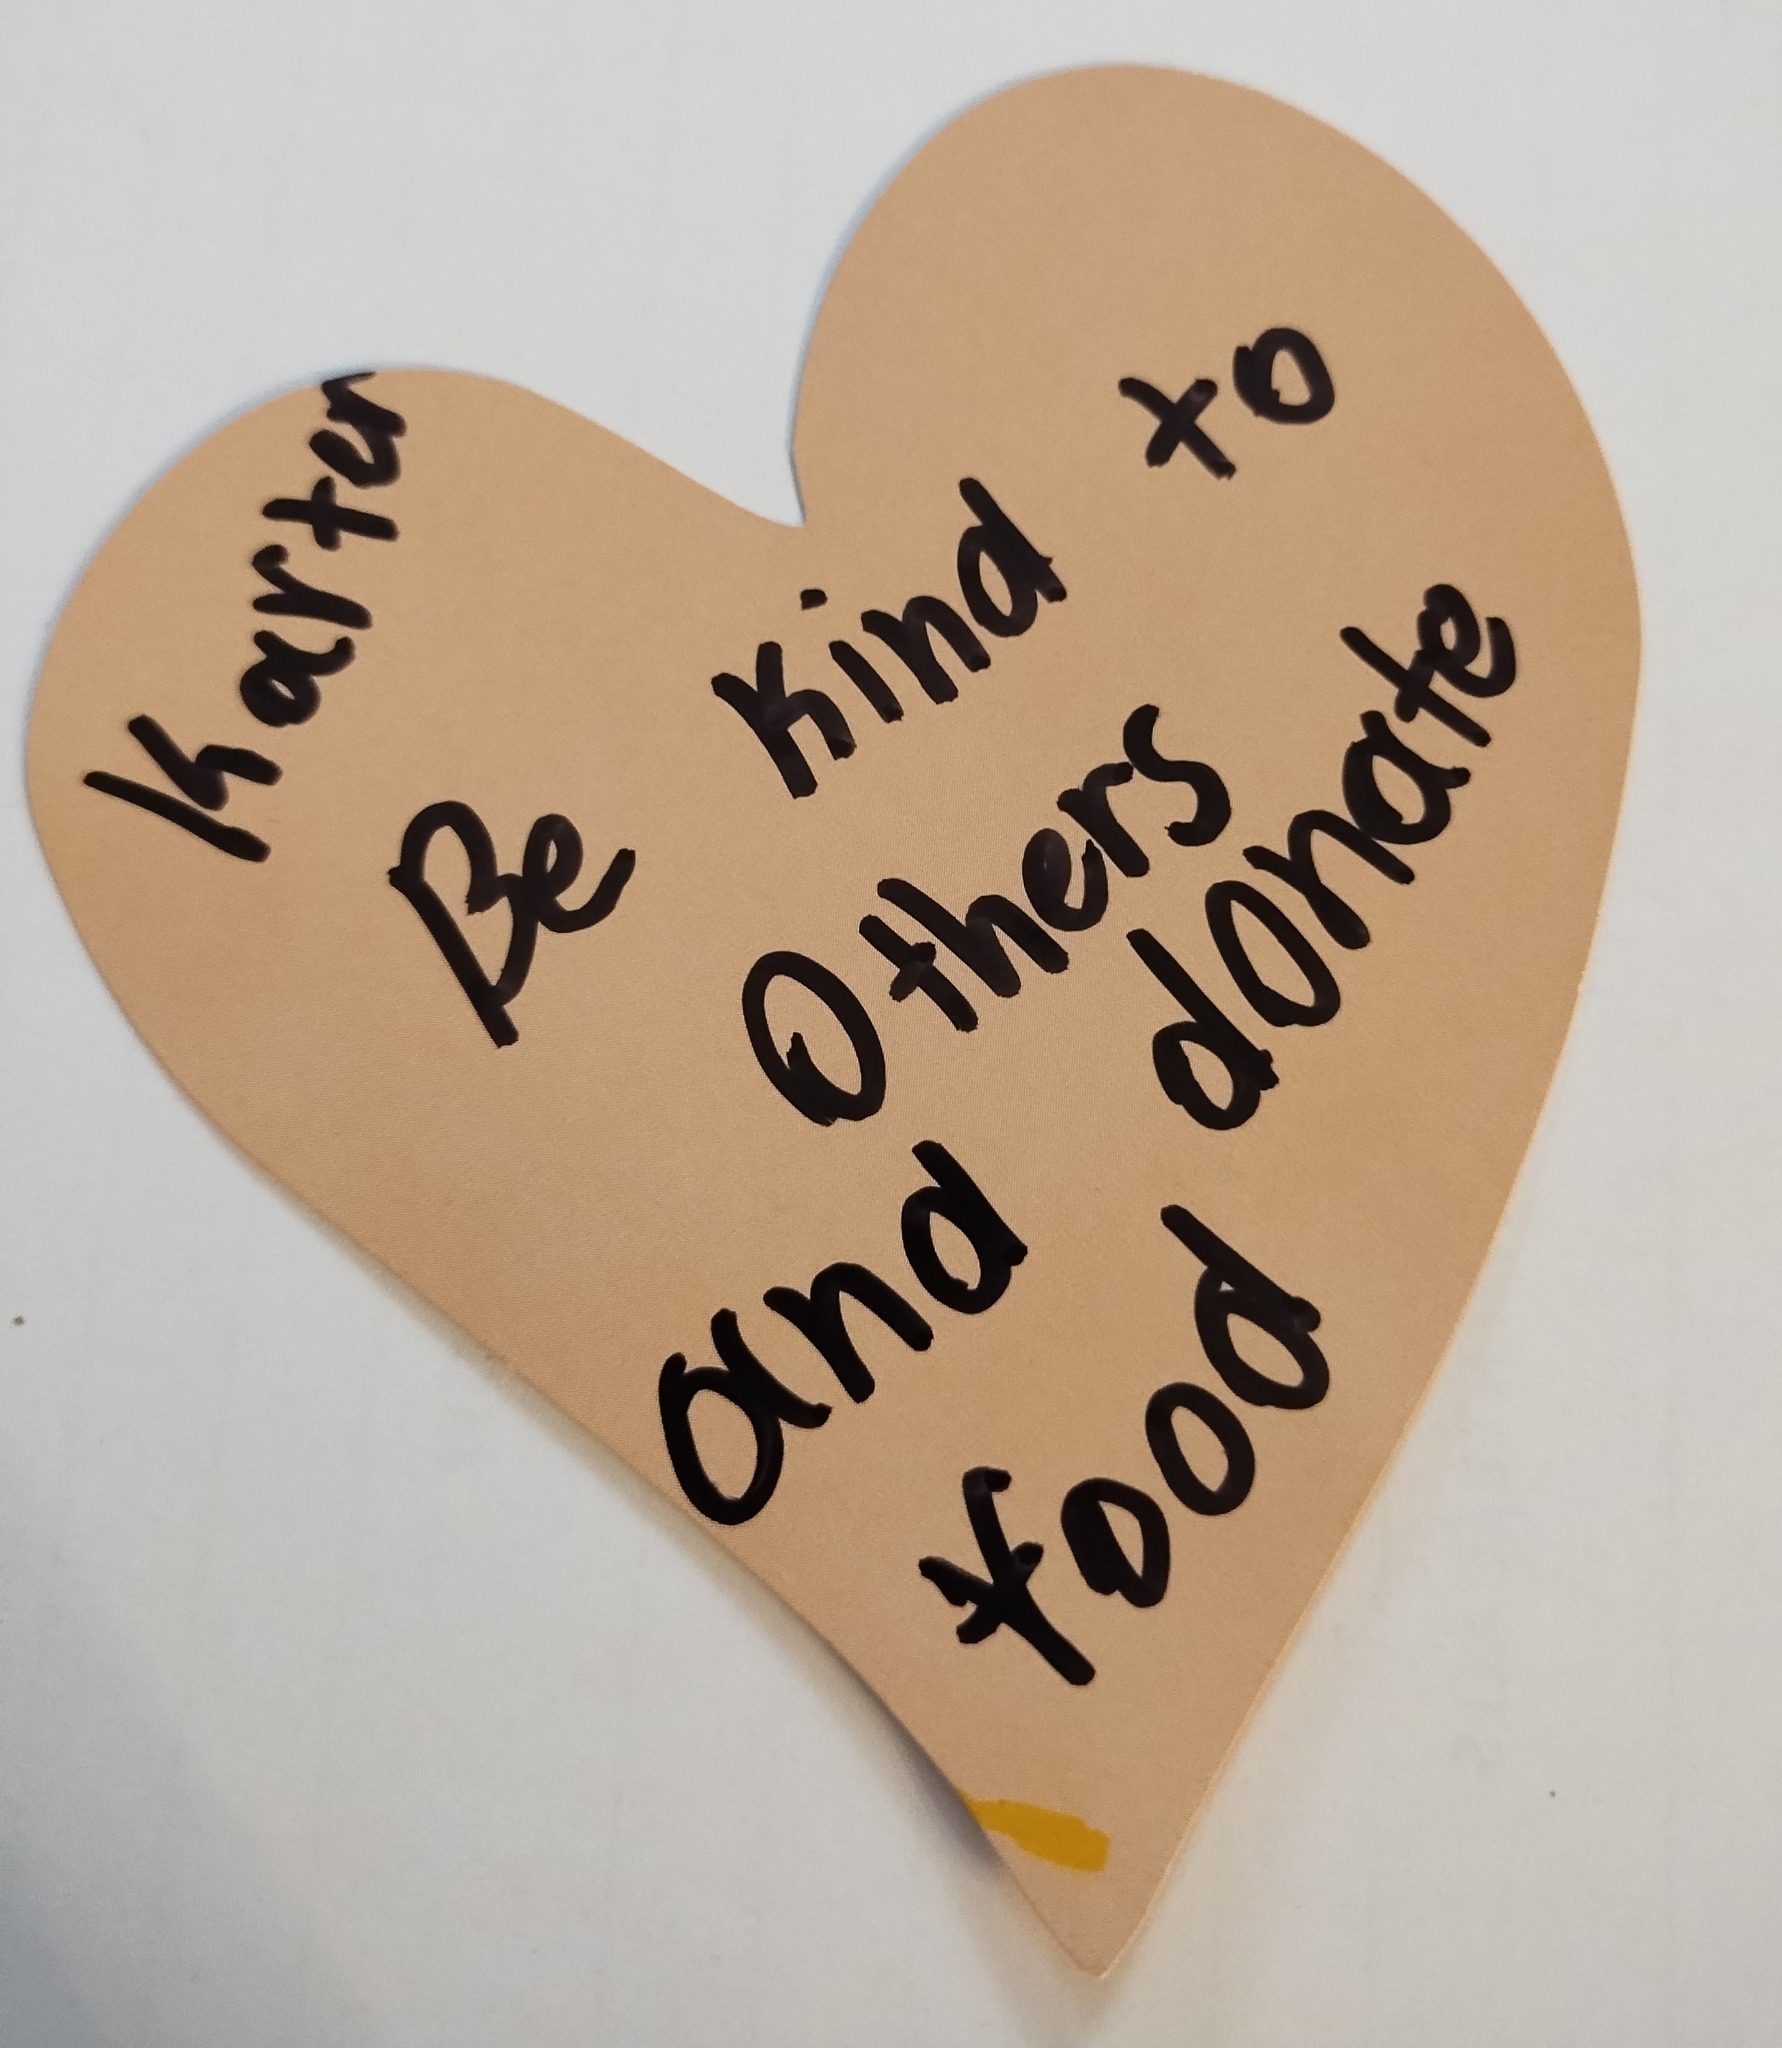 Karter
Be Kind to
Others
and donate
food